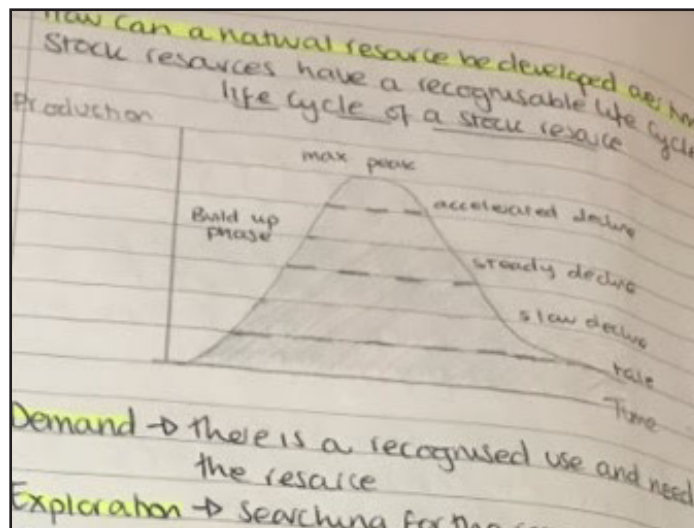 How can a natural resource be developed over
Stock resources have a recognisable life cycle
life cycle of a stock resource
Production
max peak
Build up
phase
accelerated decline
steady decline
slow decline
rate
Time
Demand → there is a recognised use and need
the resource
Exploration → searching for the